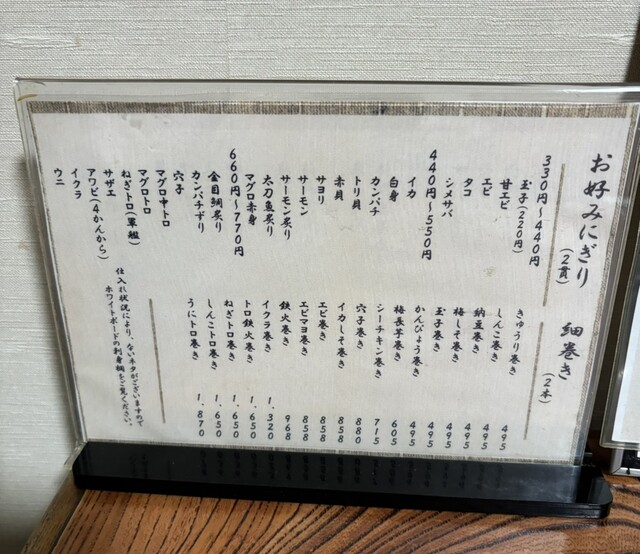 お好みにぎり(2貫)
330円～440円
玉子(220円)
甘エビ
エビ
タコ
シメサバ
440円～550円
イカ
白身
カンパチ
トリ貝
赤貝
サヨリ
サーモン
サーモン炙り
太刀魚炙り
マグロ赤身
660円～770円
金目鯛炙り
カンパチずり
穴子
マグロ中トロ
マグロトロ
ねぎトロ(軍艦)
サザエ
アワビ(4かんから)
イクラ
ウニ
細巻き(2本)
きゅうり巻き 495
しんこ巻き 495
納豆巻き 495
梅しそ巻き 495
玉子巻き 495
かんぴょう巻き 495
梅長芋巻き 605
シーチキン巻き 715
穴子巻き 880
イカしそ巻き 858
エビ巻き 858
エビマヨ巻き 858
鉄火巻き 968
イクラ巻き 1,320
トロ鉄火巻き 1,650
ねぎトロ巻き 1,650
しんこトロ巻き 1,650
うにトロ巻き 1,870
仕入れ状況により、ないネタがございますので
ホワイトボードの刺身欄をご覧ください。